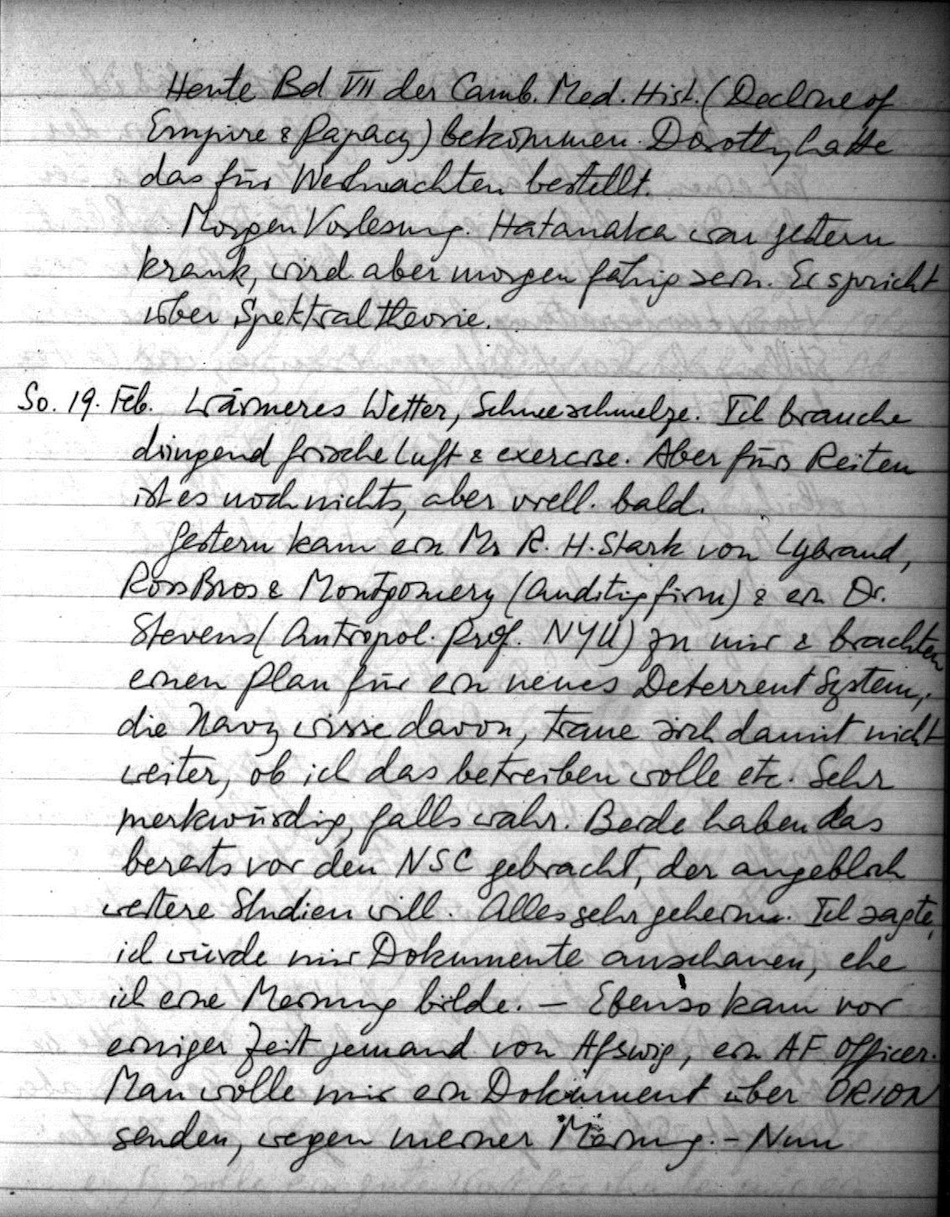 Heute Bd VII der Camb. Med. Hist. (Decline of
Empire & Papacy) bekommen. Dorothy hatte
das für Weihnachten bestellt.
Morgen Vorlesung. Hatanaka war gestern
krank, wird aber morgen fähig sein. Er spricht
über Spektraltheorie.
So. 19. Feb. Wärmeres Wetter, Schneeschmelze. Ich brauche
dringend frische Luft & exercise. Aber fürs Reiten
ist es noch nichts, aber viell. bald.
Gestern kam ein Mr R. H. Stark von Lybrand,
Ross Bros & Montgomery (Auditing firm) & ein Dr.
Stevens (Antropol. Prof. NYU) zu mir & brachten
einen Plan für ein neues Deterrent System,
die Navy wisse davon, traue sich damit nicht
weiter, ob ich das betreiben wolle etc. Sehr
merkwürdig, falls wahr. Beide haben das
bereits vor den NSC gebracht, der angeblich
weitere Studien will. Alles sehr geheim. Ich sagte,
ich würde mir Dokumente anschauen, ehe
ich eine Meinung bilde. – Ebenso kam vor
einiger Zeit jemand von Afswig, ein AF Officer.
Man wolle mir ein Dokument über ORION
senden, wegen meiner Meinung. – Nun